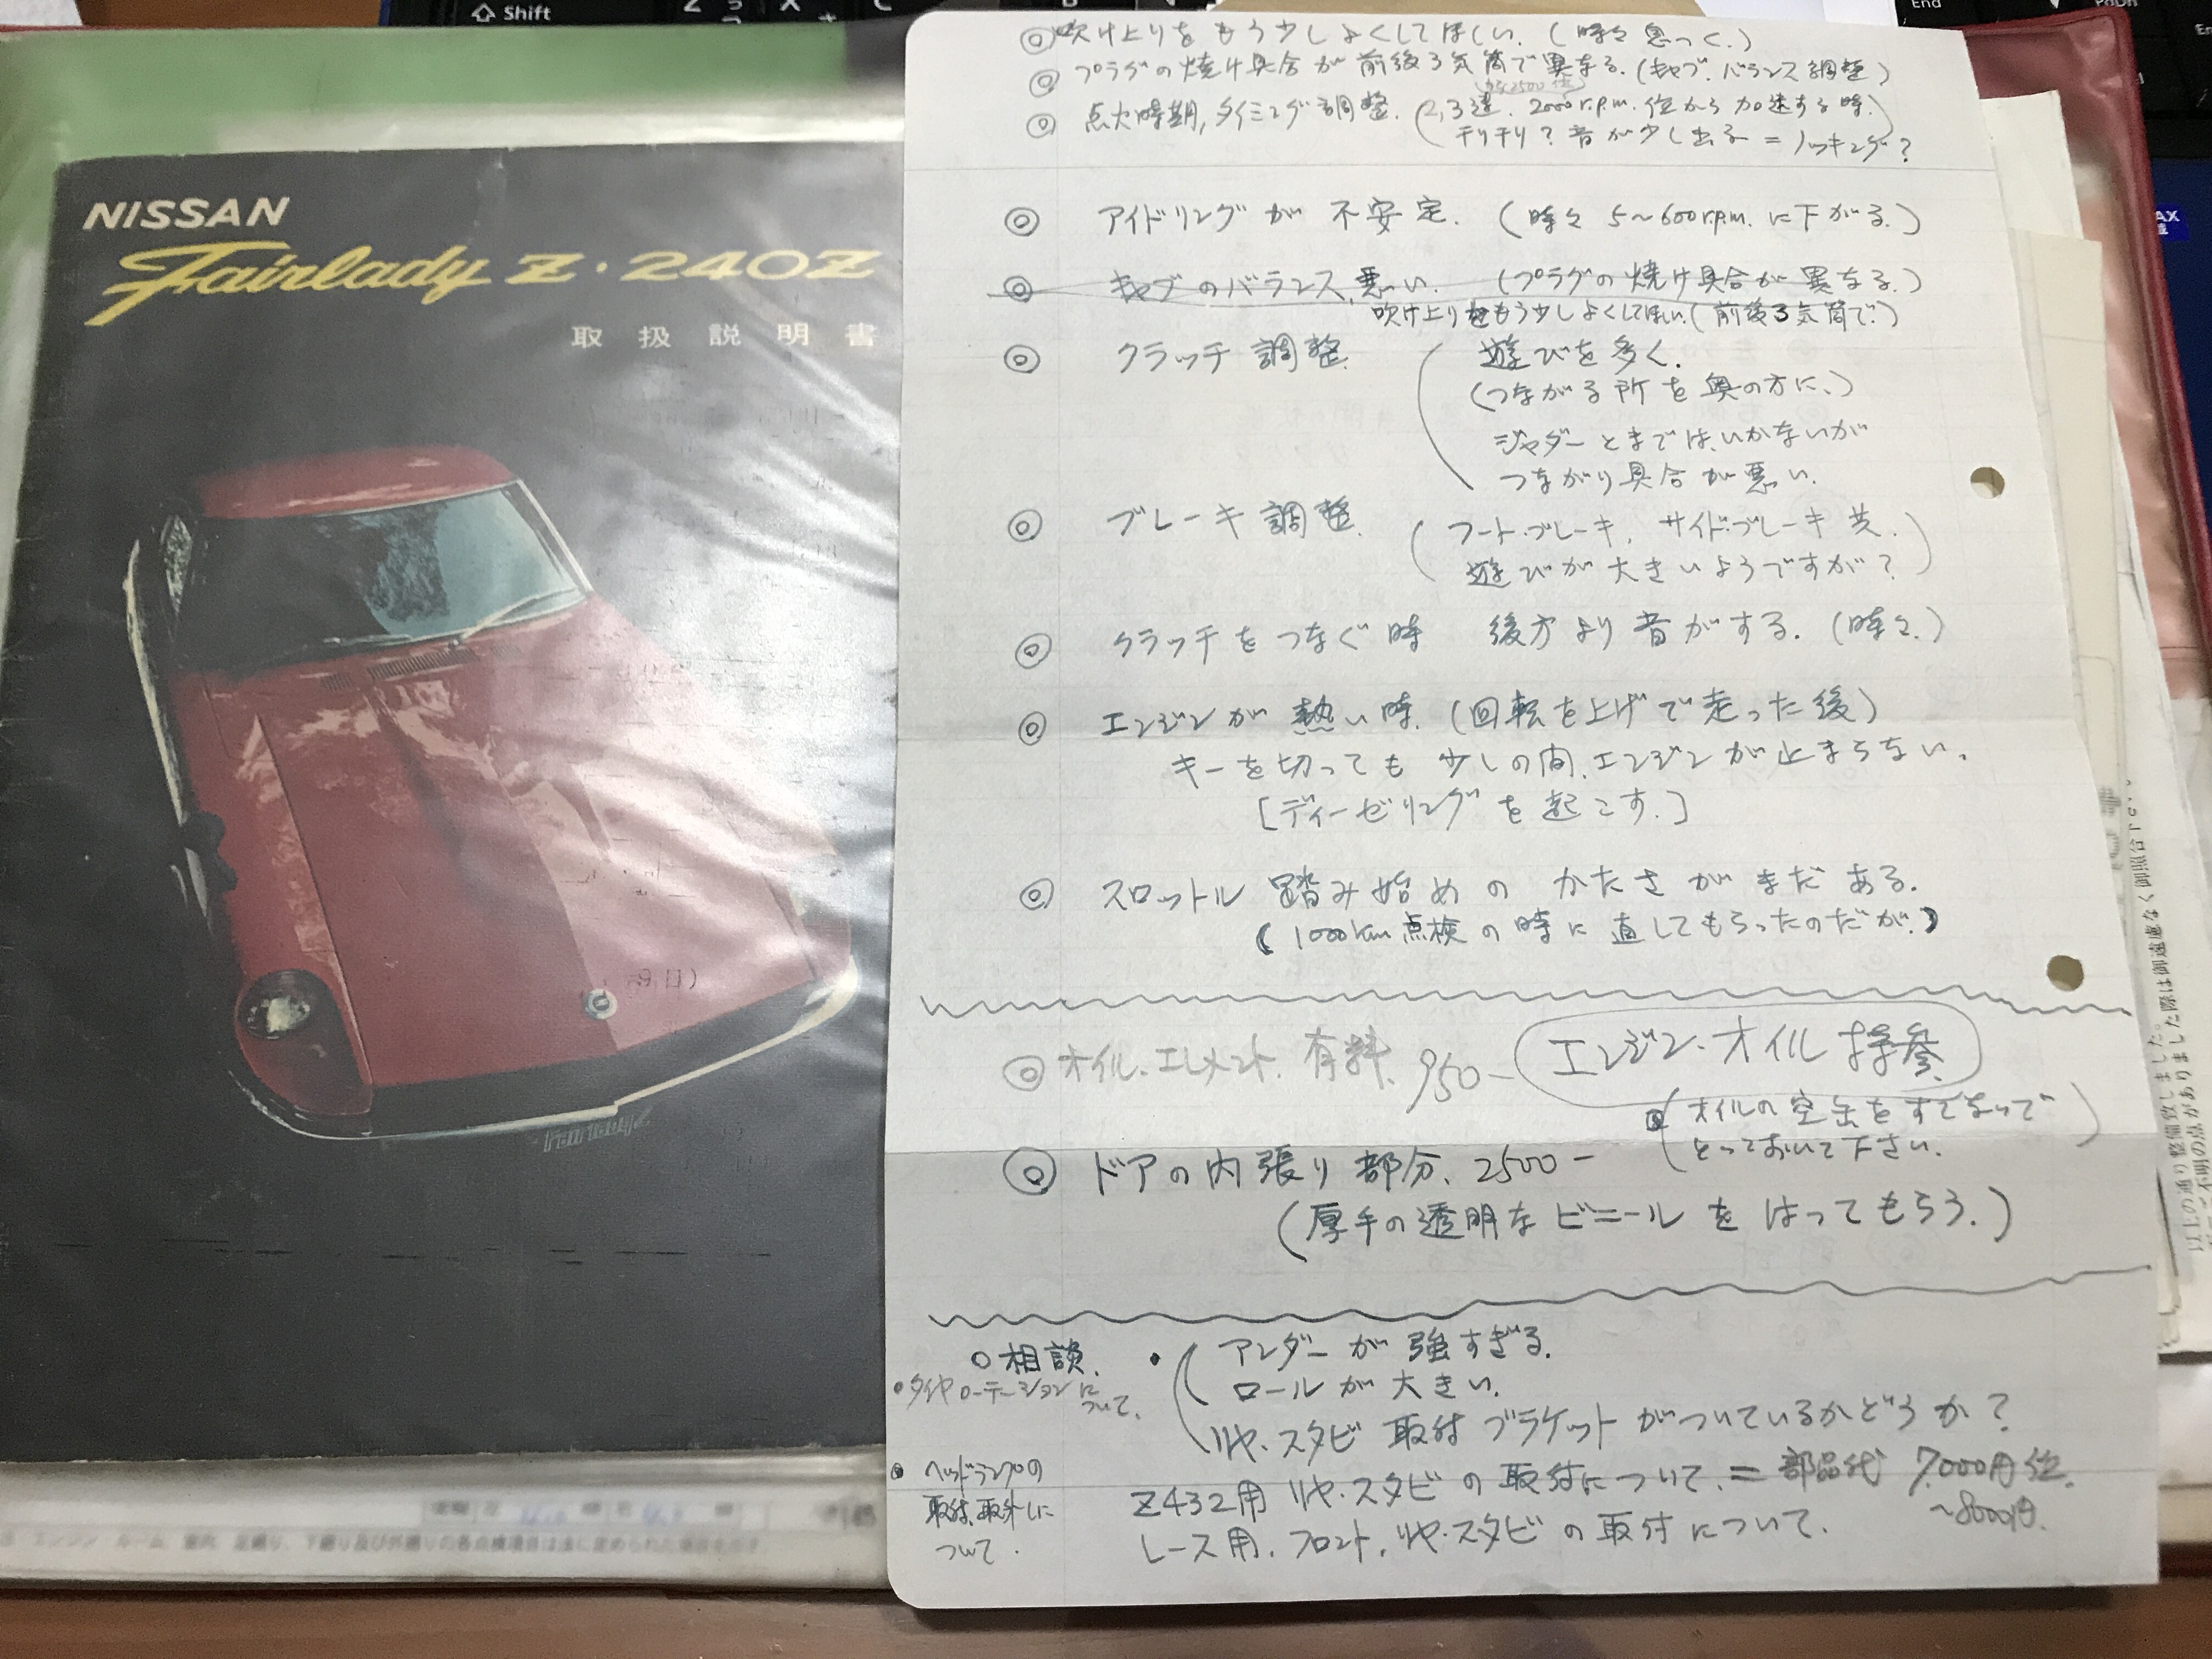 Shift
End
PgDn
NISSAN
Fairlady Z・240Z
取扱説明書
Fairlady Z
◎吹け上りをもう少しよくしてほしい。(時々息つく。)
◎プラグの焼け具合が前後3気筒で異なる。(キャブ.バランス調整)
◎点火時期,タイミング調整.(2,3速.2000r.p.m.位から加速する時.
チリチリ?音が少し出る=ノッキング?
◎アイドリングが不安定.(時々5~600r.p.m.に下がる.)
◎キャブのバランス悪い.(プラグの焼け具合が異なる.)
吹け上りをもう少しよくしてほしい.(前後3気筒で.)
◎クラッチ調整.(遊びを多く.
(つながる所を奥の方に.)
ジャダーとまではいかないが
つながり具合が悪い.
◎ブレーキ調整.(フート・ブレーキ,サイド・ブレーキ共.
遊びが大きいようですが?)
◎クラッチをつなぐ時 後方より音がする.(時々.)
◎エンジンが熱い時.(回転を上げて走った後)
キーを切っても少しの間,エンジンが止まらない.
[ディーゼリングを起こす.]
◎スロットル踏み始めのかたさがまだある.
(1000km点検の時に直してもらったのだが.)
◎オイル.エレメント.有料.950-
エンジン・オイル持参.
(オイルの空缶をすてないで
とっておいて下さい.)
◎ドアの内張り部分.2500-
(厚手の透明なビニールをはってもらう.)
○相談.
・アンダーが強すぎる.
ロールが大きい.
リヤ・スタビ取付ブラケットがついているかどうか?
・タイヤローテーションに
ついて.
・ヘッドランプの
取付,取外しに
ついて.
Z432用リヤ・スタビの取付について.=部品代7,000円位.
~8000円.
レース用.フロント,リヤ・スタビの取付について.